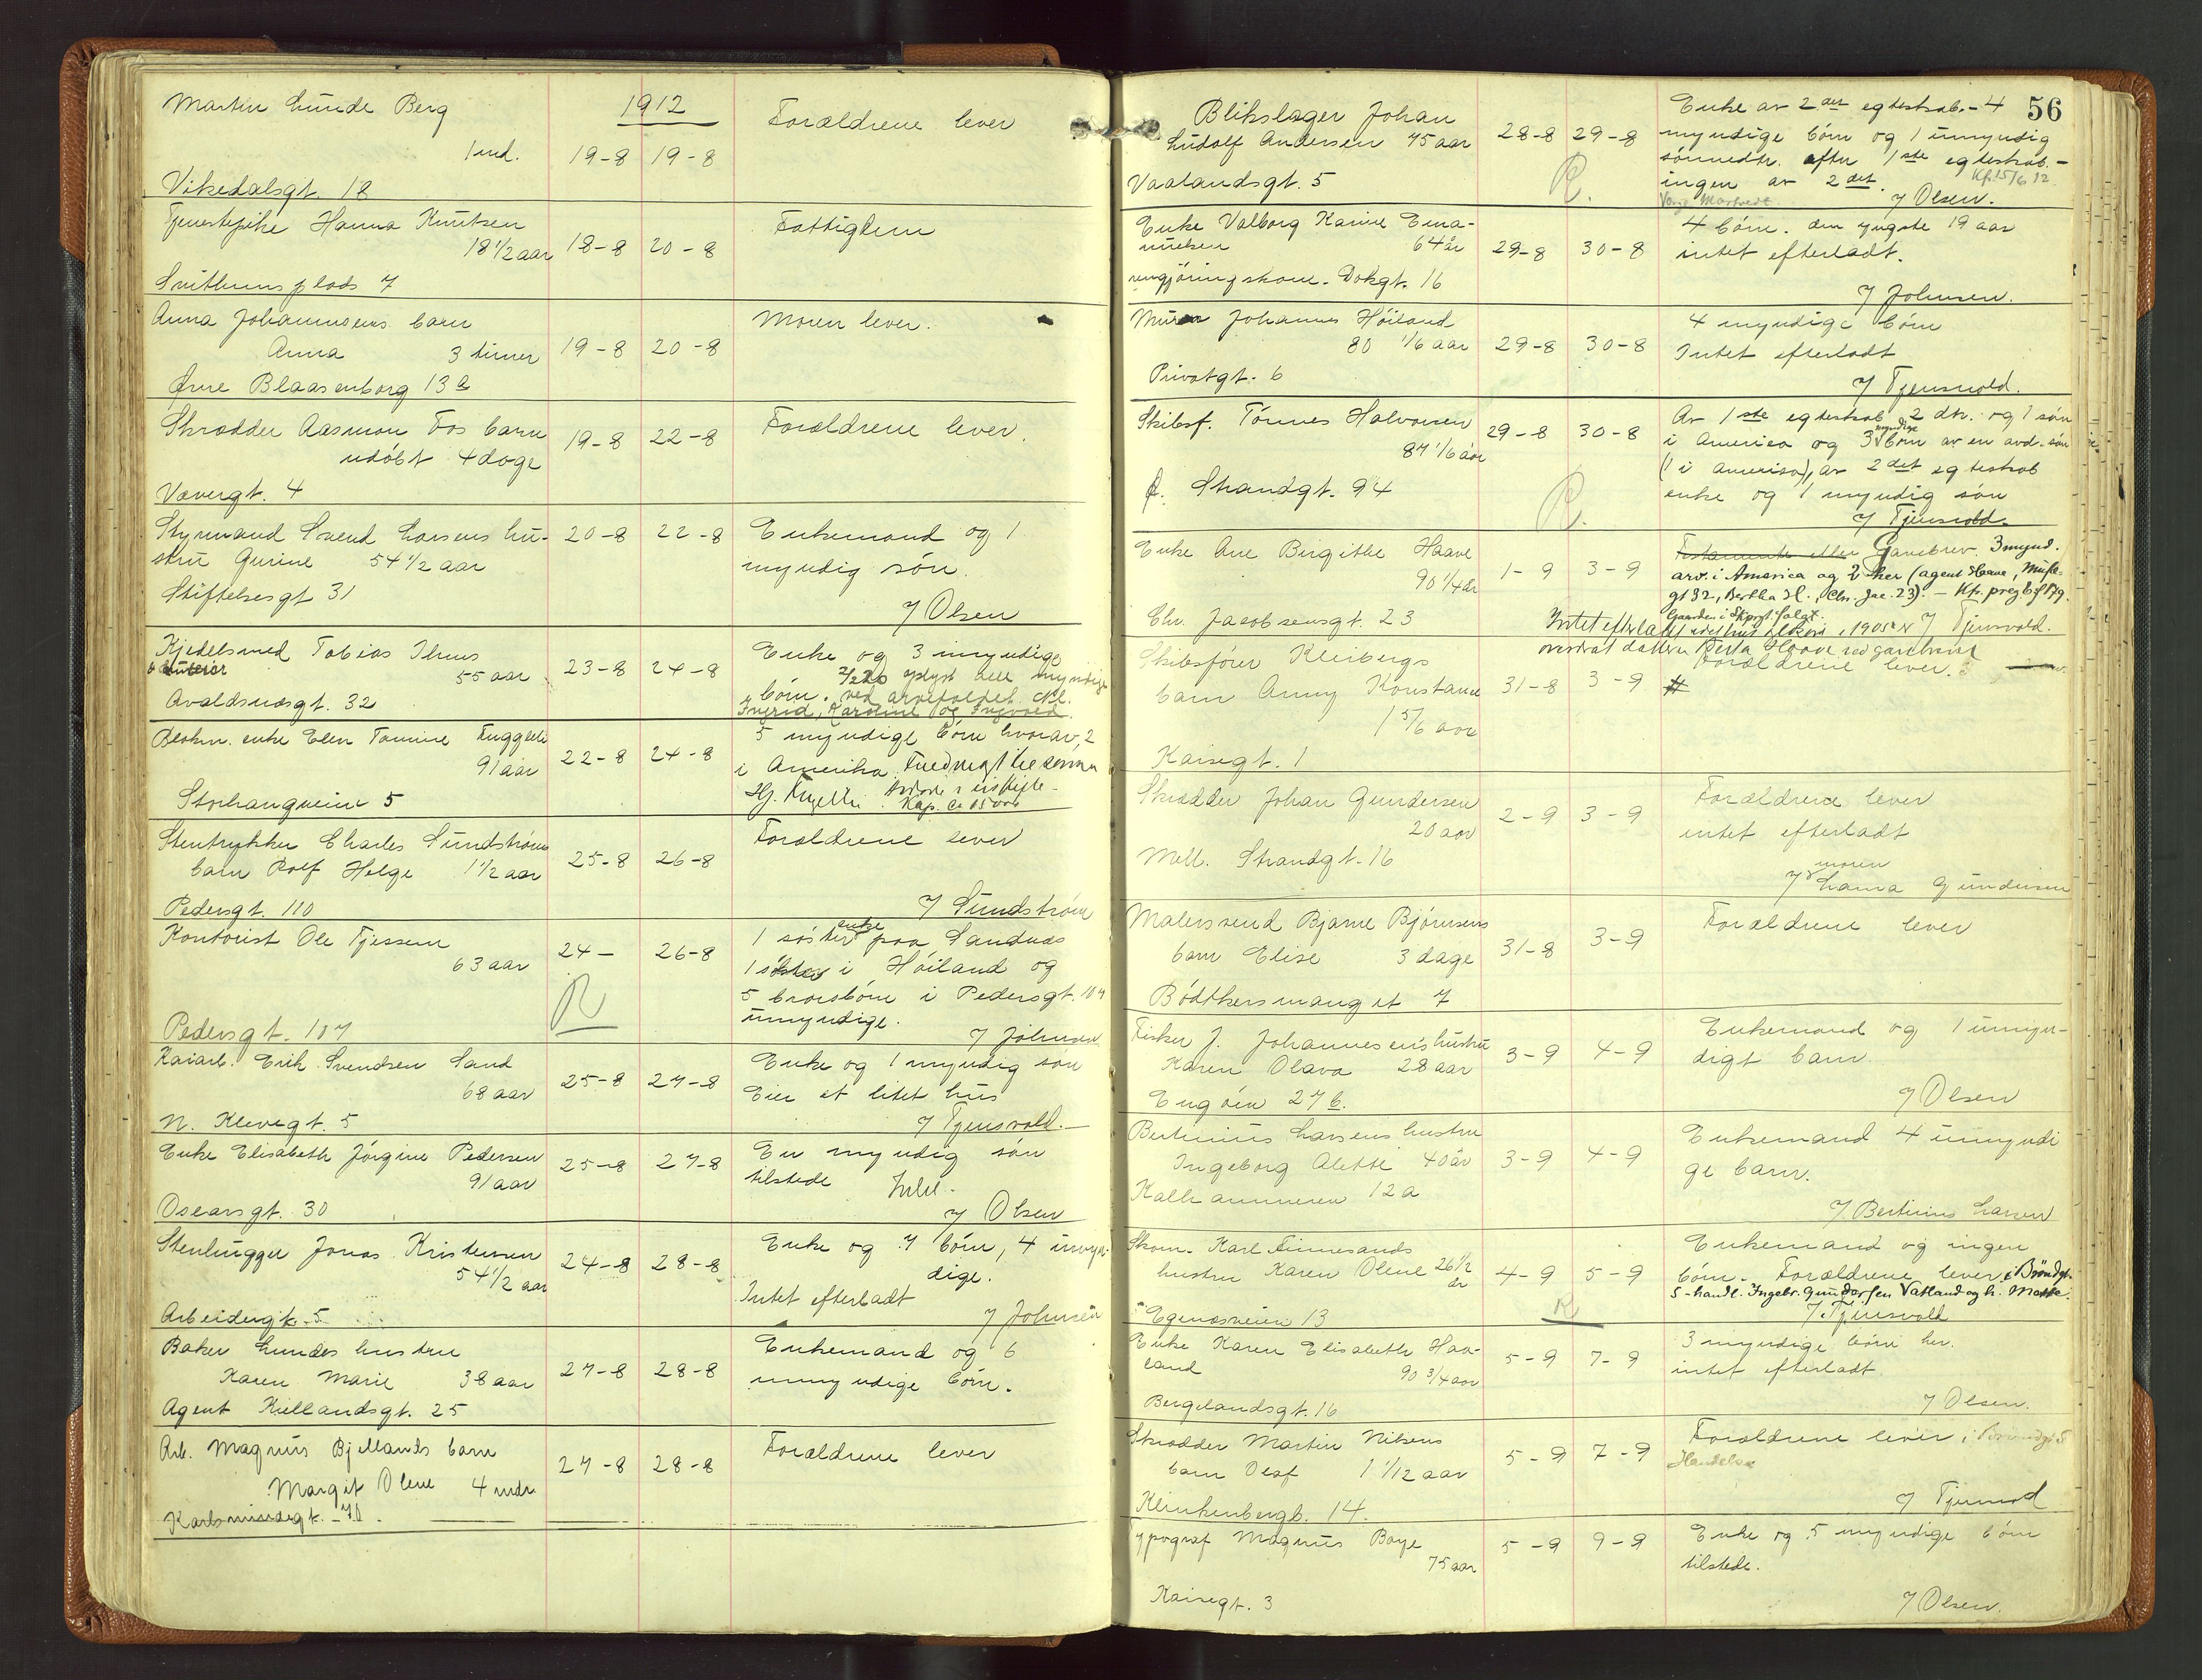 Martin Lunde Berg
1 md.
Vikedalsgt. 18
1912
19-8 19-8
Forældrene lever
Tjenestepike Hanna Knutsen
18 1/2 aar
Svithunsplads 7
18-8 20-8
Fattiglem
Anna Johannesens barn
Anna 3 timer
Øvre Blaasenborg 13 a
19-8 20-8
Moren lever.
Skrædder Aasmon Fos barn
udøbt 4 dage
Vævergt. 4
19-8 22-8
Forældrene lever.
Styrmand Svend Larsens hu-
stru Gurine 54 1/2 aar
Stiftelsesgt 31
20-8 22-8
Enkemand og 1
myndig søn.
J Olsen
Kjedelsmed Tobias Ilnes
55 aar
Avaldsnæsgt. 32
23-8 24-8
Enke og 3 myndige
børn. ved arvefaldet
Ingrid, Karoline og Ingvald.
Blokm. enke Elen Tomine
91 aar
Storhaugveien 5
22-8 24-8
5 myndige børn hvorav 2
i Amerika.
Stentrykker Charles Sundstrøms
barn Rolf Helge 1 1/2 aar
Pedersgt. 110
25-8 26-8
Forældrene lever
J Sundstrøm
Kontorist Ole Tjessem
63 aar
Pedersgt. 107
24- 26-8
R
1 søster enke paa Sandnæs
1 søster i Høiland og
5 brorsbørn i Pedersgt. 107
umyndige.
J Johnsen
Kaiarb. Erik Svendsen Sand
68 aar
N. Klevegt. 5
25-8 27-8
Enke og 1 myndig søn
Eier et litet hus
J Tjensvold.
Enke Elisabeth Jørgine Pedersen
91 aar
Oscarsgt. 30
25-8 27-8
En myndig søn
tilstede
J Olsen
Stenhugger Jonas Kristensen
54 1/2 aar
Arbeidergt. 5
24-8 28-8
Enke og 7 børn, 4 umyn-
dige.
Intet efterladt
J Johnsen
Baker Lundes hustru
Karen Marie 38 aar
Agent Kiellandsgt. 25
27-8 28-8
Enkemand og 6
umyndige børn.
Arb. Magnus Bjellands barn
Margit Olene 4 mdr
Karlsminnegt. 70.
27-8 28-8
Forældrene lever
56
Blikslager Johan
Ludolf Andersen 75 aar
Vaalandsgt. 5
28-8 29-8
R.
Enke av 2det egteskab. - 4
myndige børn og 1 umyndig
sønnedtr. efter 1ste egteskab. -
ingen av 2det.
Kfr. 15/6 12
J Olsen.
Enke Valborg Karine Ema-
nuelsen 64 år
rengjøringskone. Dokgt. 16
29-8 30-8
4 børn. den yngste 19 aar
intet efterladt.
J Johnsen.
Murer Johannes Høiland
80 1/6 aar
Privatgt. 6
29-8 30-8
4 myndige børn
Intet efterladt
J Tjensvold.
Skibsf. Tønnes Halvorsen
87 1/6 aar
Ø. Strandgt. 94
29-8 30-8
R.
Av 1ste egteskab 2 dtr. og 1 søn
i America og 3 myndige børn av en avd. søn
(1 i America), av 2det egteskab
enke og 1 myndig søn
J Tjensvold.
Enke Ane Birgithe Haave
90 1/4 år
Chr. Jacobsensgt. 23
1-9 3-9
Testamente eller Gavebrev. 3 mynd.
arv. i America og 2 her (agent Haave,
gt 32, Bertha H., Chr. Jac. 23). -
Intet efterladt
J Tjensvold.
overdrat datteren Berta Haave ved gavebrev
Skibsfører Kleibergs
barn Anny Konstance
1 5/6 aar
Kaisegt. 1
31-8 3-9
#
Forældrene lever.
Skrædder Johan Gundersen
20 aar
Mell. Strandgt. 16
2-9 3-9
Forældrene lever
intet efterladt
moren
J Laura Gundersen
Malersvend Bjarne Bjørnsens
barn Elise 3 dage
Bødtkersmauget 7
31-8 3-9
Forældrene lever
Fisker J. Johannesens hustru
Karen Olava 28 aar
Engøen 27 b.
3-9 4-9
Enkemand og 1 umyn-
digt barn.
J Olsen
Bertinius Larsens hustru
Ingeborg Alette 40 år
Kalhammeren 12 a
3-9 4-9
Enkemand 4 umyndi
ge barn.
J Bertinius Larsen
Skom. Karl Finnesands
hustru Karen Olene 26 1/2
år
Egenæsveien 13
4-9 5-9
R
Enkemand og ingen
børn. Forældrene lever i Brøndgt.
5 - handl. Ingebr. Gundersen Vatland og h.
J. Tjensvold
Enke Karen Elisabeth Haa-
land 90 3/4 aar
Bergelandsgt. 16
5-9 7-9
3 myndige børn her.
intet efterladt
J Olsen.
Skrædder Martin Nilsens
barn Olaf 1 1/12 aar
Klinkenbergb. 14.
5-9 7-9
Forældrene lever
J Tjensvold
Typograf Magnus Boye
75 aar
Kaisegt. 3
5-9 9-9
Enke og 5 myndige børn
tilstede.
J Olsen.